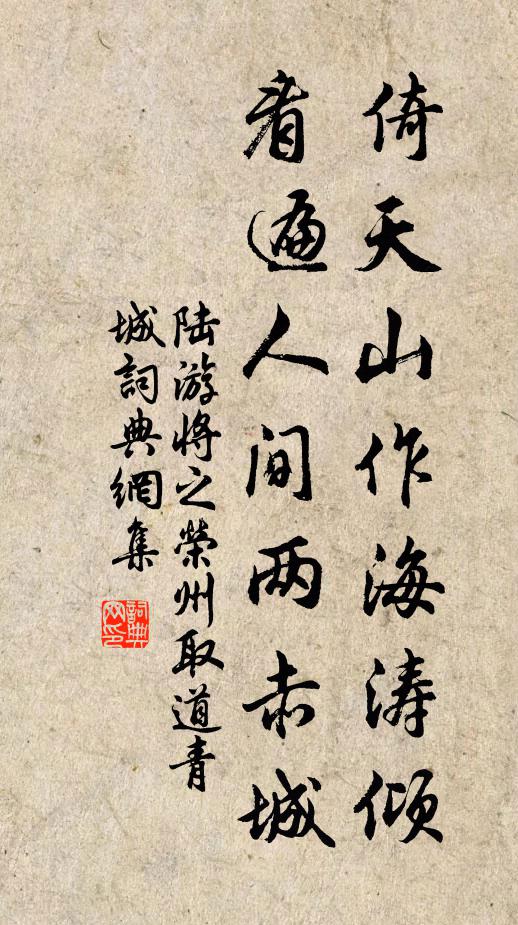 倚天山作海涛倾
看遍人间两赤城
陆游将之榮州取道青
城詞典網集
詞典
网印